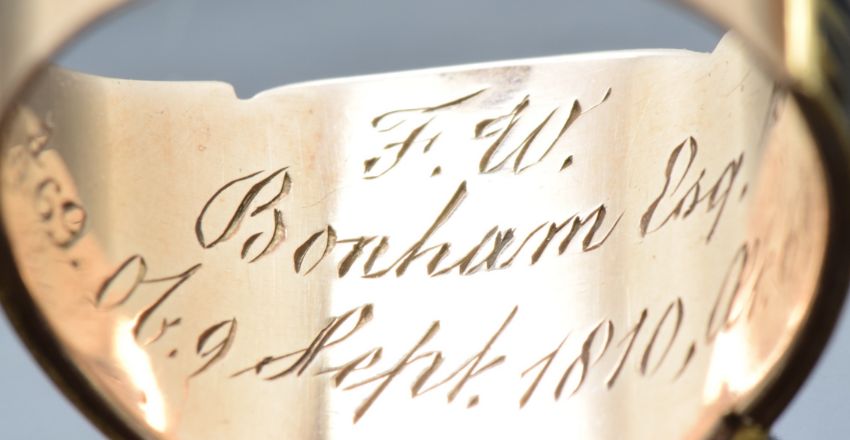 F. W.
Bonham Esq.
Ob. 9 Sept. 1810,
69.